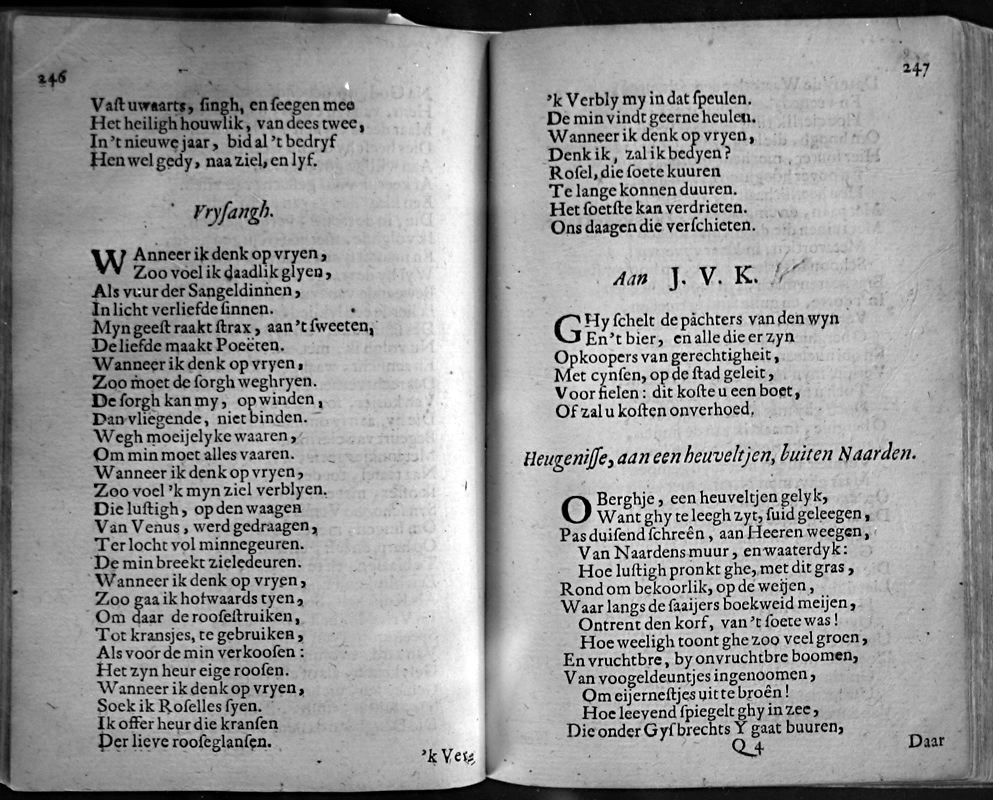 246
Vaſt uwaarts, ſingh, en ſeegen mee
Het heiligh houwlik, van dees twee,
In 't nieuwe jaar, bid al 't bedryf
Hen wel gedy, naa ziel, en lyf.
Vryſangh.
WAnneer ik denk op vryen,
Zoo voel ik daadlik glyen,
Als vuur der Sangeldinnen,
In licht verliefde ſinnen.
Myn geeſt raakt ſtrax, aan 't ſweeten,
De liefde maakt Poeëten.
Wanneer ik denk op vryen,
Zoo moet de ſorgh weghryen.
De ſorgh kan my, op winden,
Dan vliegende, niet binden.
Wegh moeijelyke waaren,
Om min moet alles vaaren.
Wanneer ik denk op vryen,
Zoo voel 'k myn ziel verblyen.
Die luſtigh, op den waagen
Van Venus, werd gedraagen,
Ter locht vol minnegeuren.
De min breekt zieledeuren.
Wanneer ik denk op vryen,
Zoo gaa ik hofwaards tyen,
Om daar de rooſeſtruiken,
Tot kransjes, te gebruiken,
Als voor de min verkooſen:
Het zyn heur eige rooſen.
Wanneer ik denk op vryen,
Soek ik Roſelles ſyen.
Ik offer heur die kranſen
Der lieve rooſeglanſen.
'k Ver-
247
'k Verbly my in dat ſpeulen.
De min vindt geerne heulen.
Wanneer ik denk op vryen,
Denk ik, zal ik bedyen?
Roſel, die ſoete kuuren
Te lange konnen duuren.
Het ſoetſte kan verdrieten.
Ons daagen die verſchieten.
Aan J. V. K.
GHy ſchelt de pachters van den wyn
En 't bier, en alle die er zyn
Opkoopers van gerechtigheit,
Met cynſen, op de ſtad geleit,
Voor fielen: dit koſte u een boet,
Of zal u koſten onverhoed.
Heugeniſſe, aan een heuveltjen, buiten Naarden.
O Berghje, een heuveltjen gelyk,
Want ghy te leegh zyt, ſuid geleegen,
Pas duiſend ſchreên, aan Heeren weegen,
Van Naardens muur, en waaterdyk:
Hoe luſtigh pronkt ghe, met dit gras,
Rond om bekoorlik, op de weijen,
Waar langs de ſaaijers boekweid meijen,
Ontrent den korf, van 't ſoete was!
Hoe weeligh toont ghe zoo veel groen,
En vruchtbre, by onvruchtbre boomen,
Van voogeldeuntjes ingenoomen,
Om eijerneſtjes uit te broên!
Hoe leevend ſpiegelt ghy in zee,
Die onder Gyſbrechts Y gaat buuren,
Q 4
Daar